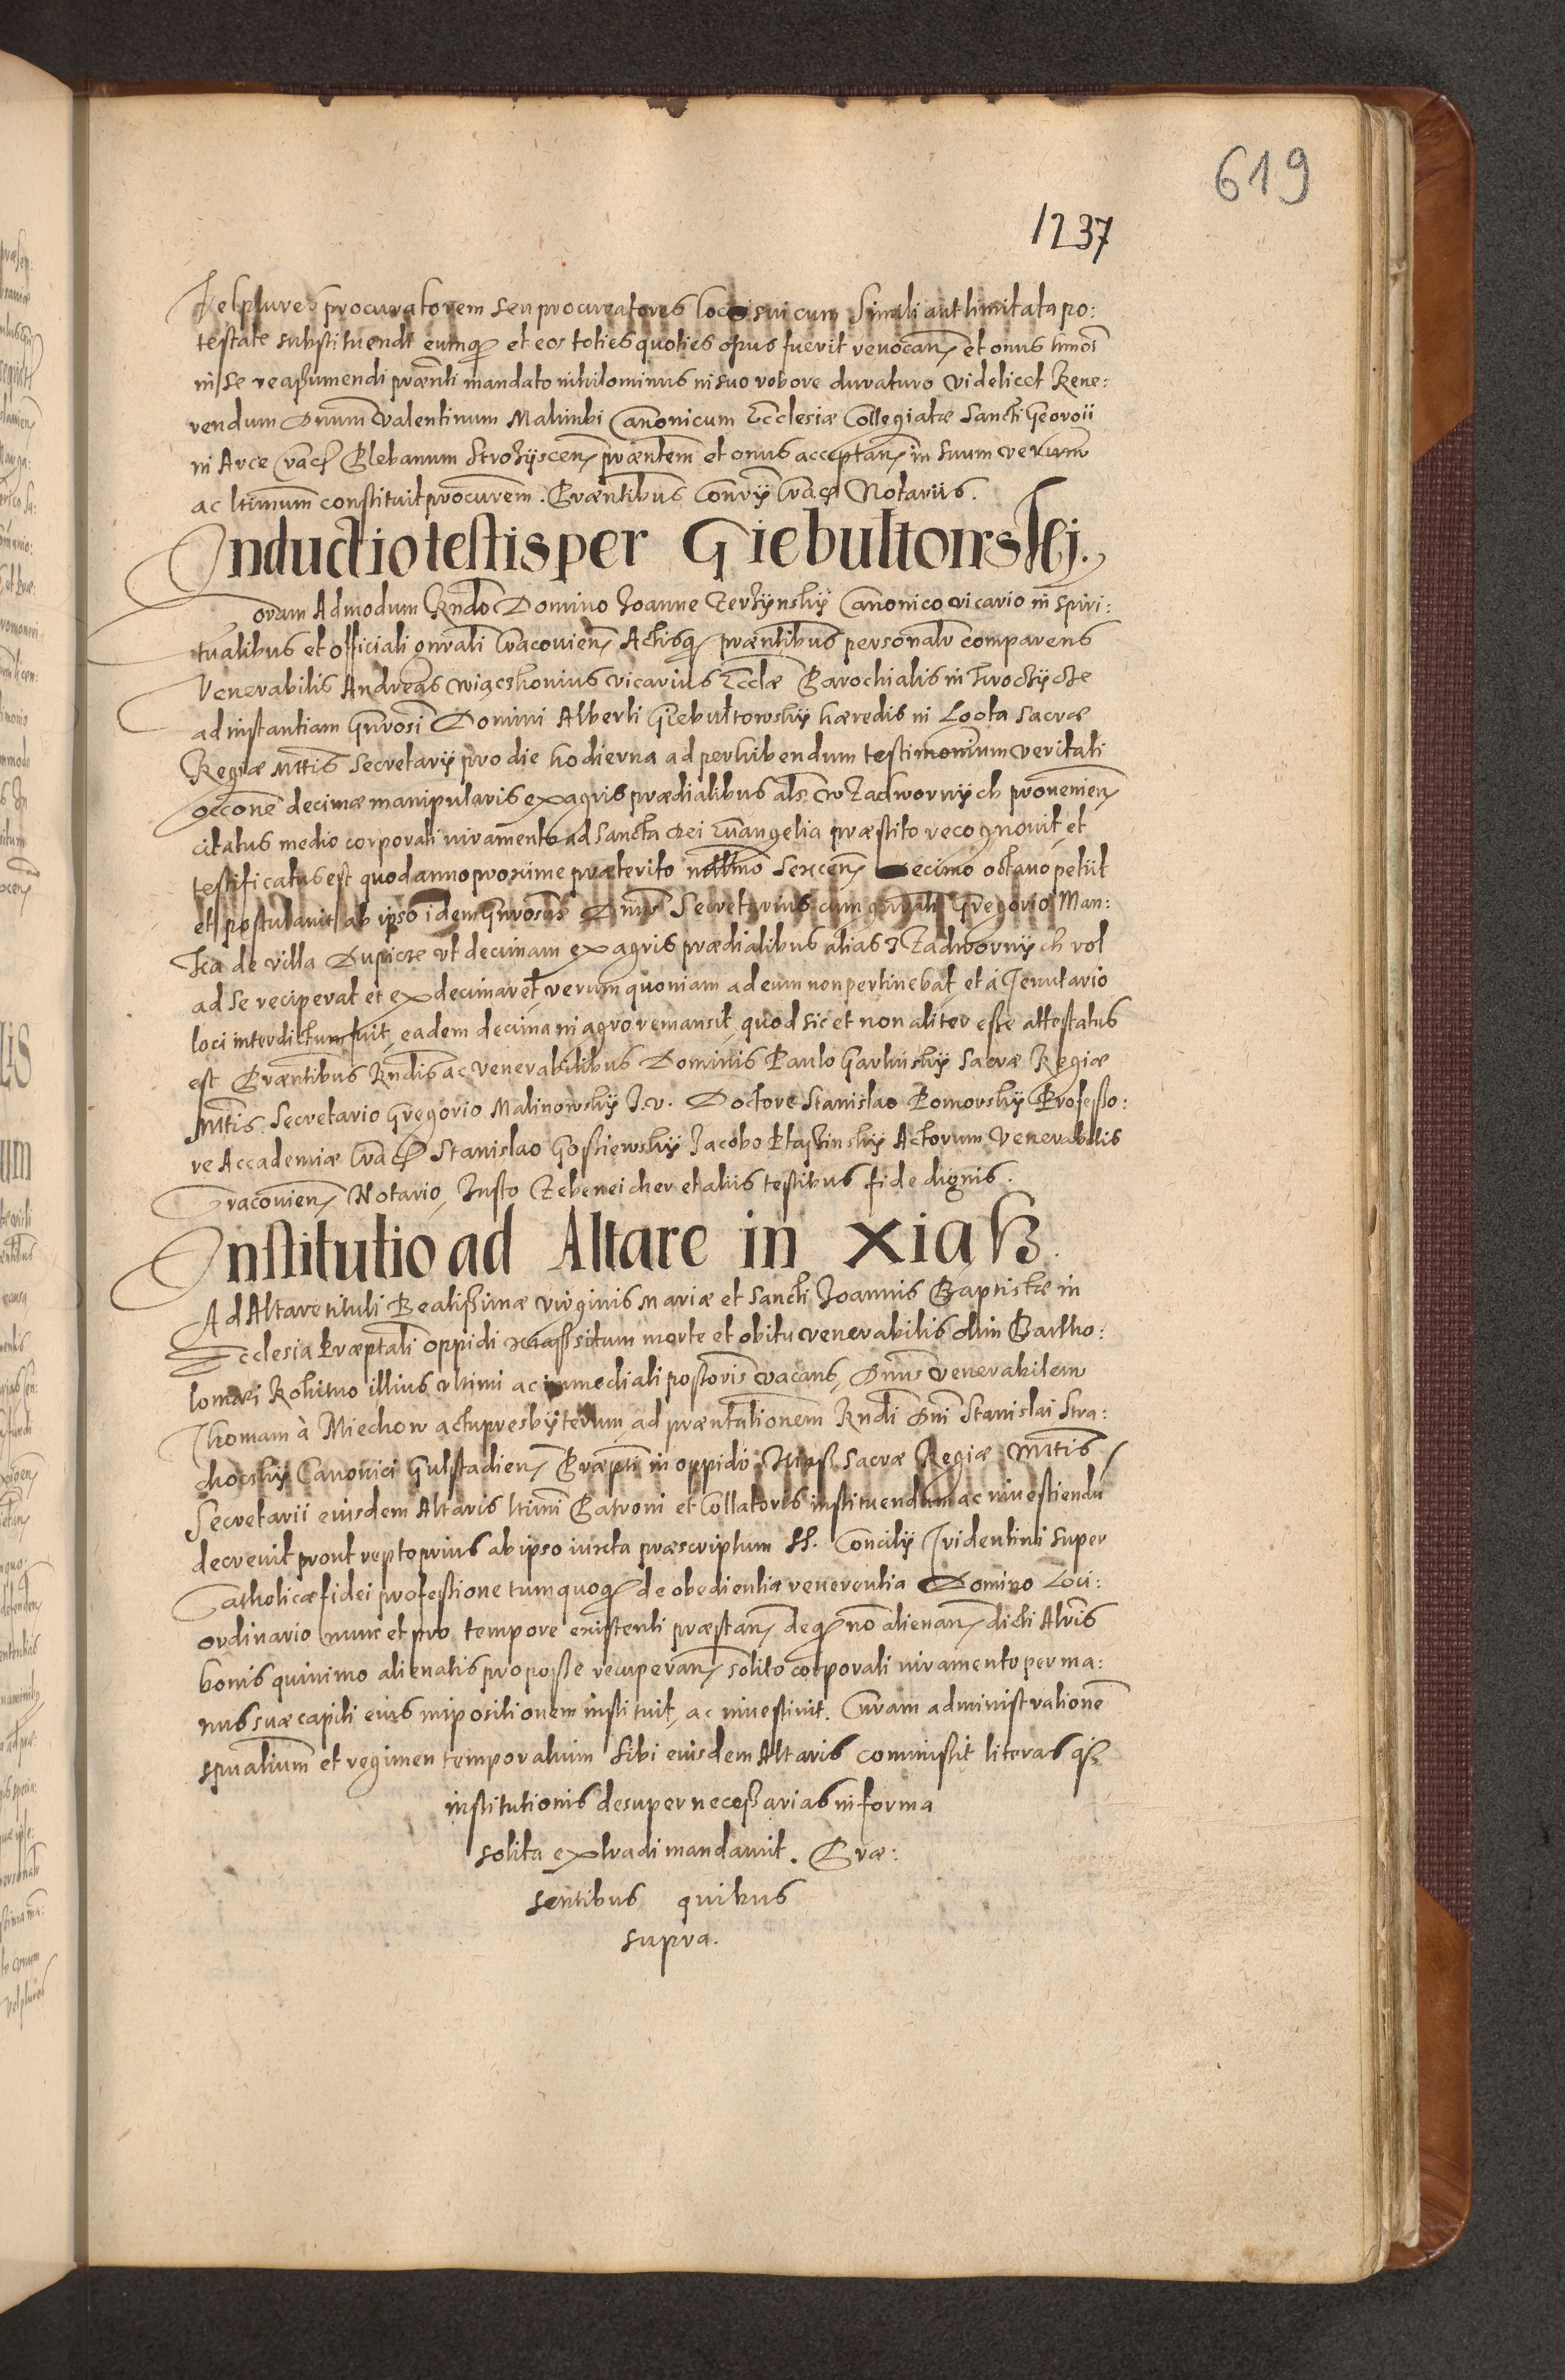 619
1237
vel plures procuratorem seu procuratores loco sui cum simili aut limitata po:
testate substituendi eumq et eos toties quoties opus fuerit revocan et onus hmoi
in se reassumendi præsenti mandato nihilominus in suo robore duraturo videlicet Reve:
rendum Dnum Valentinum Mahinbi Canonicum Ecclesiæ Collegiatæ Sancti Georgii
in Arce Crac Plebanum præntem et onus acceptan in suum verum
ac ltimum constituit procurem. Præntibus Conrÿ Crac Notariis.
Inductio testis per Giebultowskj.
Coram Admodum Rndo Domino Joanne Zerzÿnskÿ Canonico vicario in spiri:
tualibus et officiali gnrali Cracovien Actisq præntibus personalr comparens
Venerabilis Andreas vicarius Ecclæ Parochialis in
ad instantiam Gnrosi Domini Alberti Giebultowskÿ hæredis in Zgota Sacræ
Regiæ Mttis Secretarÿ pro die hodierna ad perhibendum testimonium veritati
occone decimæ manipularis ex agris prædialibus als w Zadwornÿch provenien
citatus medio corporali iuramento ad Sancta Dei Evangelia præstito recognovit et
testificatus est quod anno proxime præterito mllmo sexcen decimo octavo petiit
et postulavit ab ipso idem Gnrosus Dnus Secretarius cum Gregorio Man:
ka de villa Dupicze vt decimam ex agris prædialibus alias z Zadwornÿch rol
ad se reciperat et ex decimaret, verum quoniam ad eum non pertinebat et à Tenutario
loci interdictum fuit, eadem decima in agro remansit, quod sic et non aliter esse attestatus
est Præntibus Rndis ac venerabilibus Dominis Paulo Garlinskÿ Sacræ Regiæ
Mttis Secretario Gregorio Malinowskÿ J.V. Doctore Stanislao Pomorskÿ Professo:
re Accademiæ Crac Stanislao Gosziewskÿ Jacobo Ktaszinskÿ Actorum Venerabilis
Cracovien Notario, Justo Zebeneicher et aliis testibus fide dignis.
Institutio ad Altare in Xiasz.
Ad Altare tituli Beatissimæ virginis Mariæ et Sancti Joannis Baptistæ in
Ecclesia Præptali oppidi Xiasz situm morte et obitu venerabilis olim Bartho:
lomæi illius vltimi ac immediati possoris vacans, Dnus venerabilem
Thomam à Miechow actu presbÿterum, ad præntationem Rndi Dni Stanislai Stra:
chockÿ Canonici Gutstadien Præpti in oppido Xiasz Sacræ Regiæ Mttis
Secretarii eiusdem Altaris ltimi Patroni et Collatoris instituendum ac investiendu
decrevit prout repto prius ab ipso iuxta præscriptum SS. Concilÿ Tridentini super
Catholicæ fidei professione tum quoq de obedientia reverentia Domino Loci:
ordinario nunc et pro tempore existenti præstan deq no alienan dicti Altris
bonis quinimo alienatis pro posse recuperan solito corporali iuramento per ma:
nus suæ capiti eius impositionem instituit, ac investivit. Curam administratione
spualium et regimen temporalium sibi eiusdem Altaris commisit literas qz
institutionis desuper necessarias in forma
solita extradi mandavit. Præ:
sentibus quibus
supra.